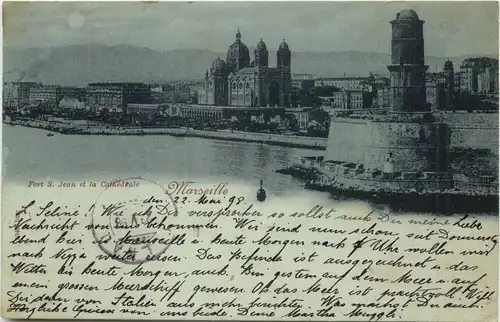 Fort S. Jean et la Cathédrale
Marseille
den 22. Mai 98.
L. Seline! Wie ich Dir versprochen so sollst auch Du meine Liebe
Nachricht von uns bekommen. Wir sind nun schon seit Donnerstag
Abend hier in Marseille u. heute Morgen nach Uhr wollen wir
nach Nizza weiter reisen. Das Hotel ist ausgezeichnet u. das
Wetter bis heute Morgen, auch. Bin gestern auf dem Meer u. auf
einem grossen Meerschiff gewesen. Oh das Meer ist prachtvoll. Will
Dir dann von Italien aus mehr berichten. Was machst Du auch.
Herzliche Grüsse von uns beide. Deine Martha Muggli.